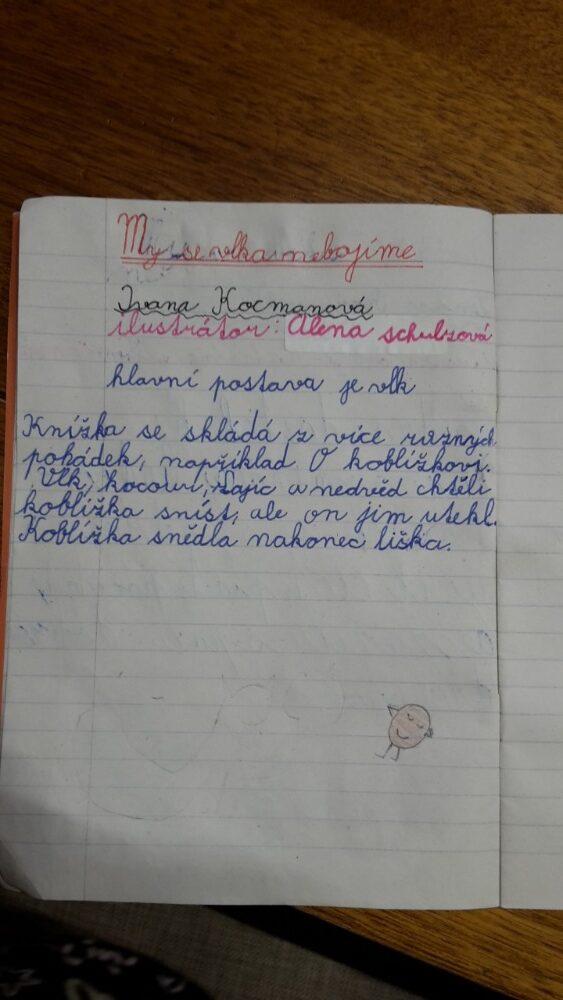 My se vlka nebojíme
Ivana Kocmanová
ilustrátor: Alena schulzová
hlavní postava je vlk
Knížka se skládá z více různých
pohádek, například O koblížkovi.
Vlk, kocour, Zajíc a nedvěd chtěli
koblížka sníst, ale on jim utekl.
Koblížka snědla nakonec liška.